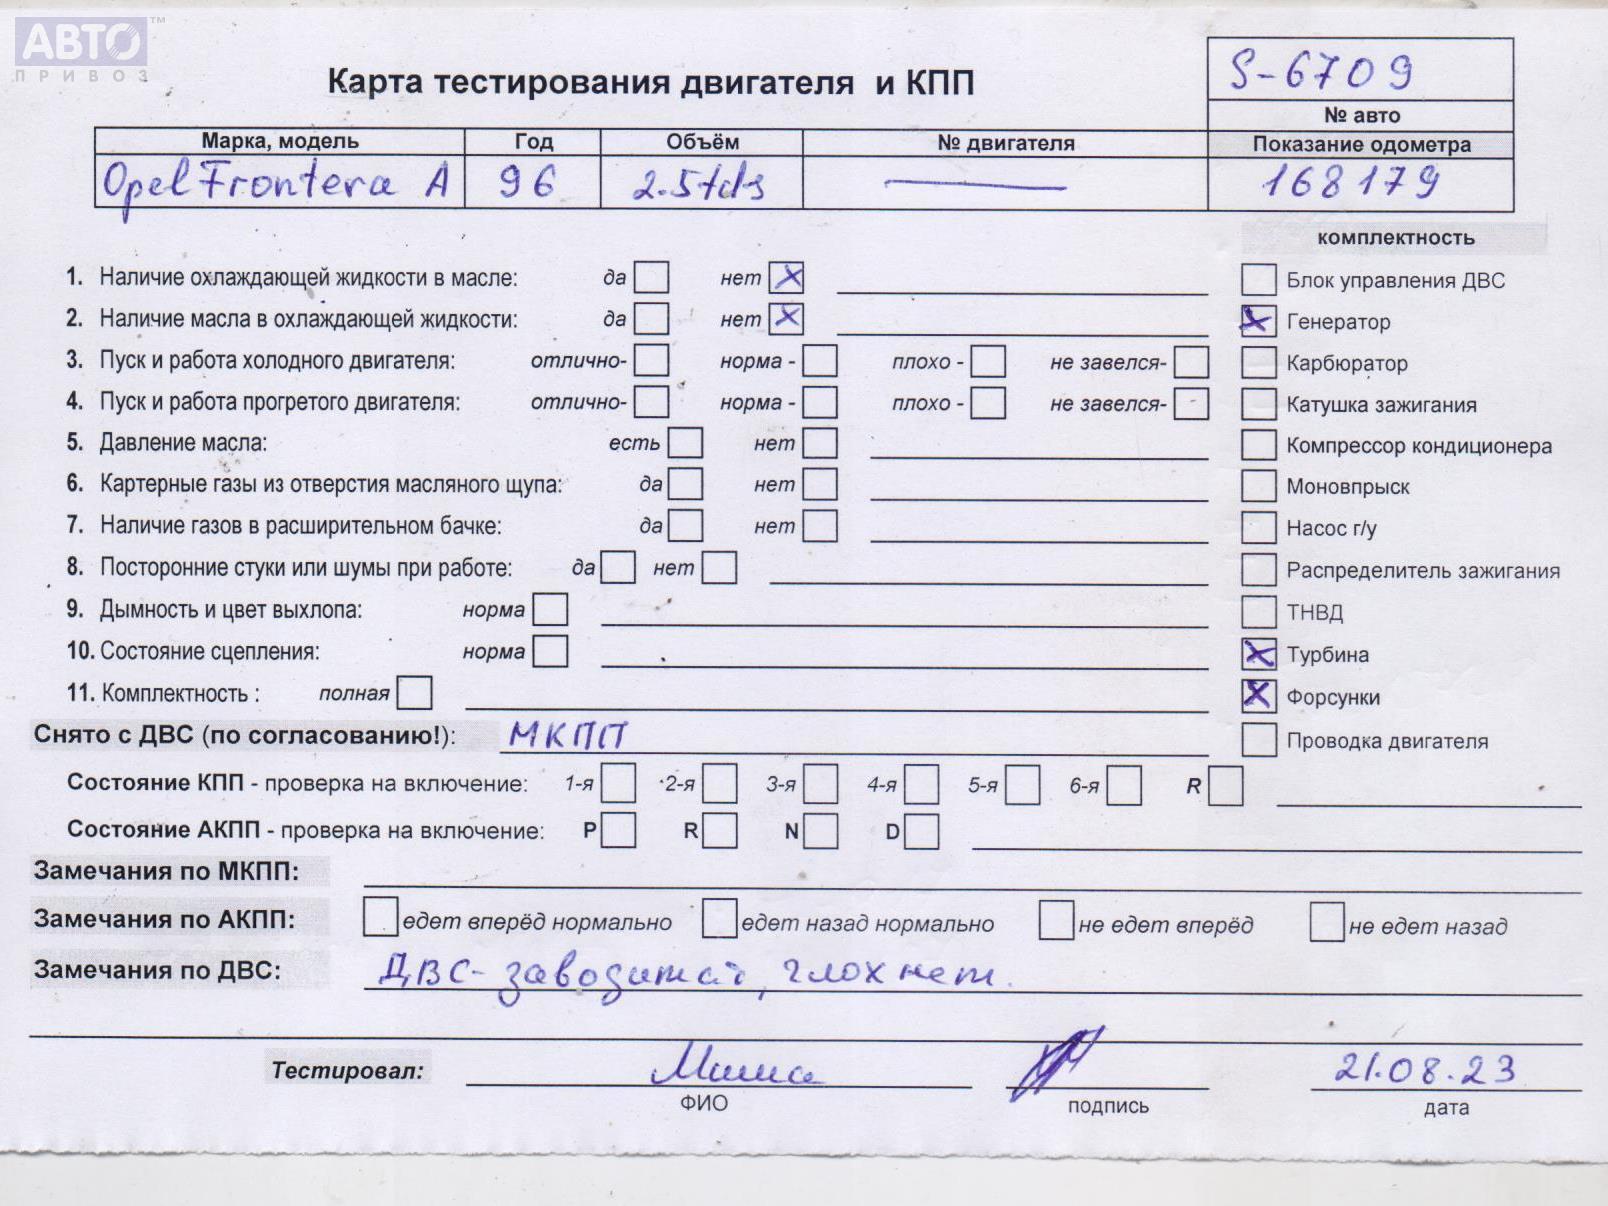 АВТО™
ПРИВОЗ
S-6709
Карта тестирования двигателя и КПП
№ авто
Марка, модель Год Объём № двигателя Показание одометра
Opel Frontera A 96 2.5tds — 168179
комплектность
1. Наличие охлаждающей жидкости в масле: да нет X
Блок управления ДВС
2. Наличие масла в охлаждающей жидкости: да нет X
X Генератор
3. Пуск и работа холодного двигателя: отлично- норма - плохо - не завелся-
Карбюратор
4. Пуск и работа прогретого двигателя: отлично- норма - плохо - не завелся-
Катушка зажигания
5. Давление масла: есть нет
Компрессор кондиционера
6. Картерные газы из отверстия масляного щупа: да нет
Моновпрыск
7. Наличие газов в расширительном бачке: да нет
Насос г/у
8. Посторонние стуки или шумы при работе: да нет
Распределитель зажигания
9. Дымность и цвет выхлопа: норма
ТНВД
10. Состояние сцепления: норма
X Турбина
11. Комплектность : полная
X Форсунки
Снято с ДВС (по согласованию!): МКПП
Проводка двигателя
Состояние КПП - проверка на включение: 1-я 2-я 3-я 4-я 5-я 6-я R
Состояние АКПП - проверка на включение: P R N D
Замечания по МКПП:
Замечания по АКПП: едет вперёд нормально едет назад нормально не едет вперёд не едет назад
Замечания по ДВС: ДВС- заводится, глохнет.
Тестировал: Миша 21.08.23
ФИО подпись дата